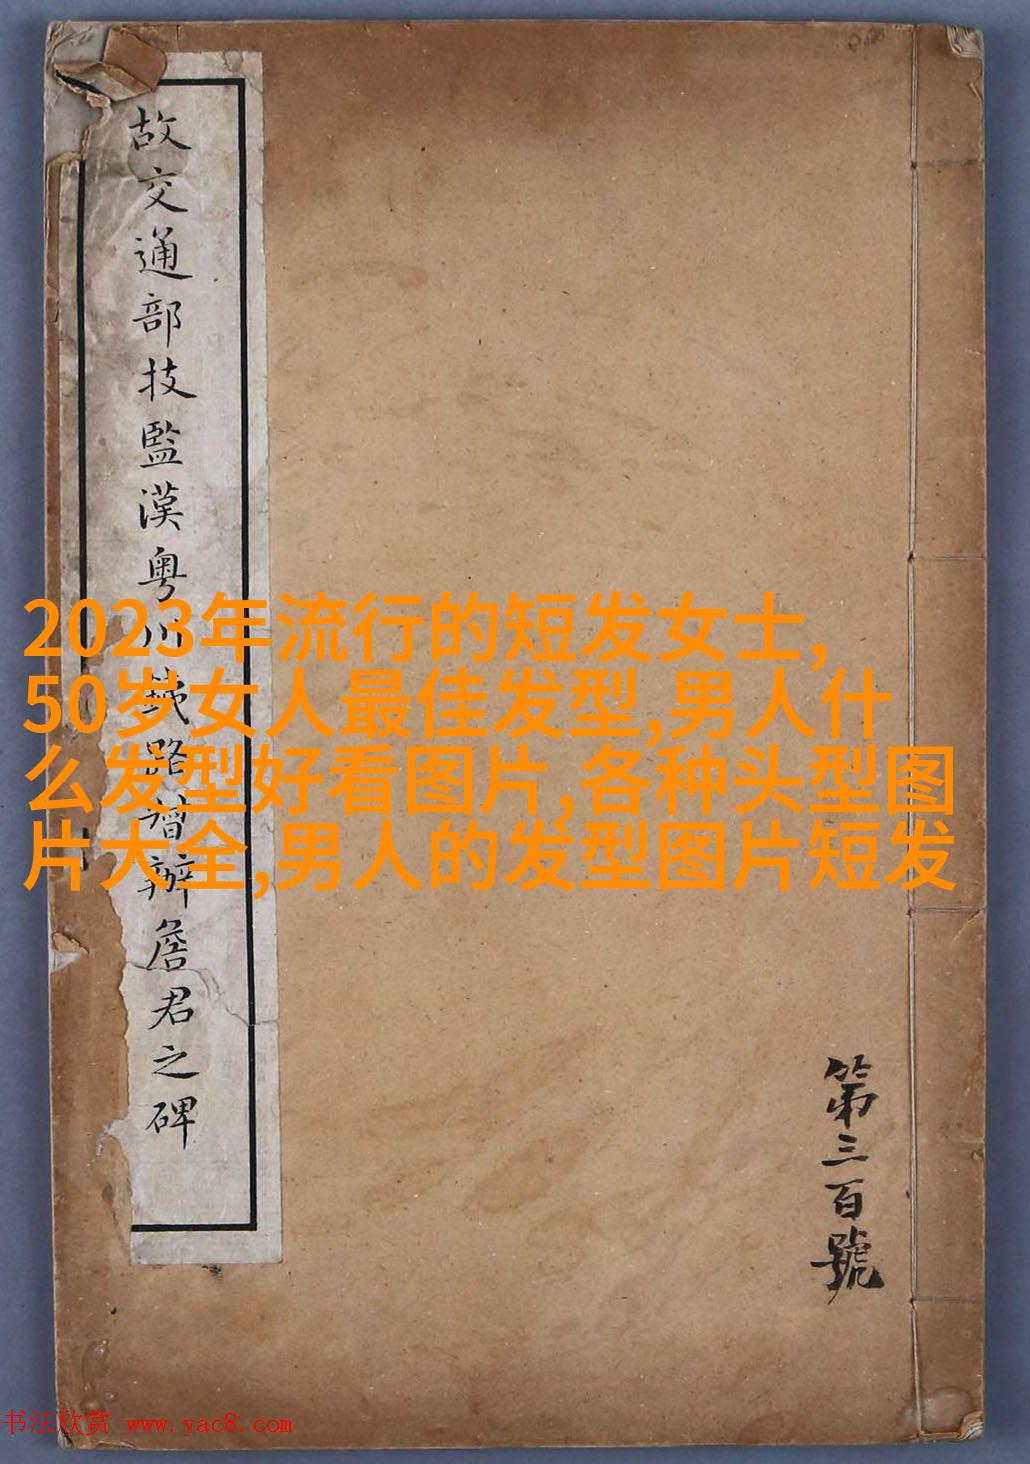 故交通部技監漢粤川鐵路督辦詹君之碑
2023年流行的短发女士,
50岁女人最佳发型,男人什
么发型好看图片,各种头型图
片大全,男人的发型图片短发
第三百號
书法欣赏 www.yac8.com